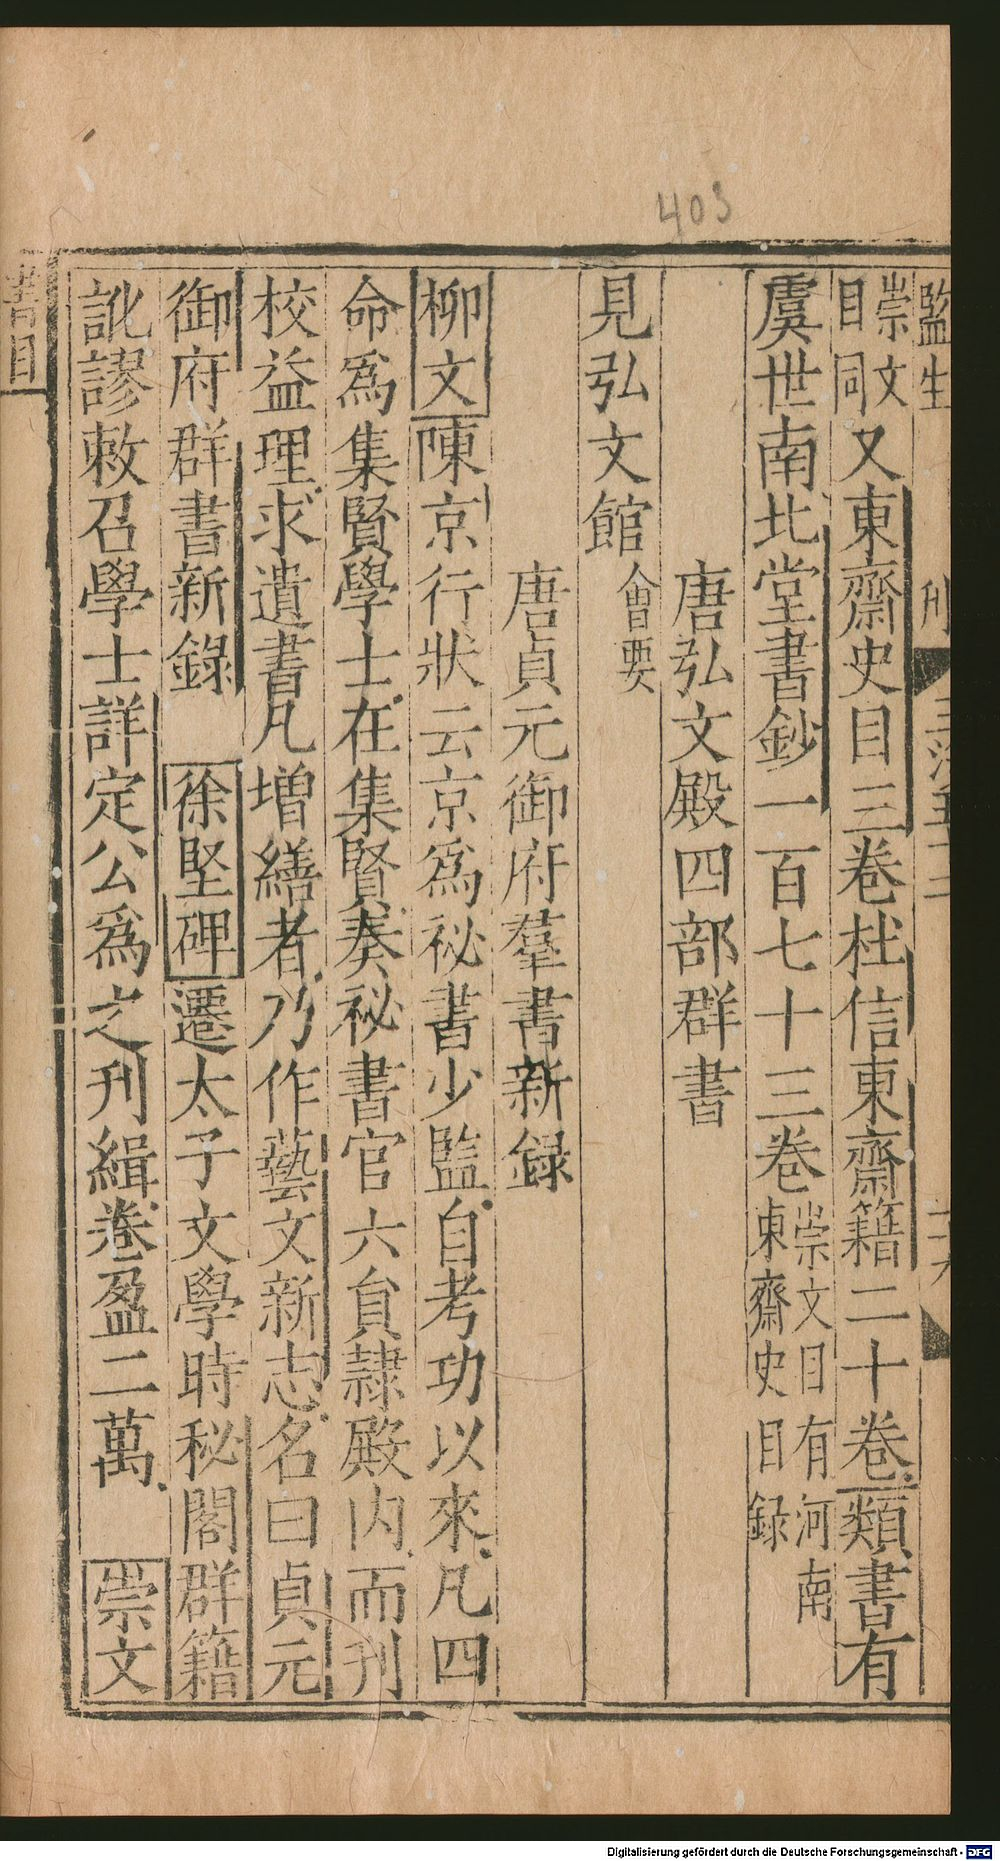 403
監生
崇文目同又東齋史目三卷杜信東齋籍二十卷類書有
虞世南北堂書鈔一百七十三卷崇文目有河南東齋史目録
唐弘文殿四部群書
見弘文館會要
唐貞元御府羣書新録
柳文陳京行狀云京爲祕書少監自考功以來凡四
命爲集賢學士在集賢奏祕書官六員隷殿内而刊
校益理求遺書凡增繕者乃作藝文新志名曰貞元
御府群書新錄 徐堅碑遷太子文學時秘閣群籍
訛謬敕召學士詳定公爲之刊緝卷盈二萬 崇文
書目
Digitalisierung gefördert durch die Deutsche Forschungsgemeinschaft - DFG